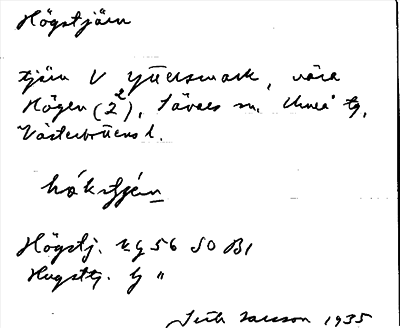 Högstjärn
tjärn V Yttersmark, nära
Högen (2²), Sävars sn. Umeå tg,
Västerbottens l.
hǫkstjén
Högstj. kg 56 SO B1
Hugstj. lg "
Larsson 1935